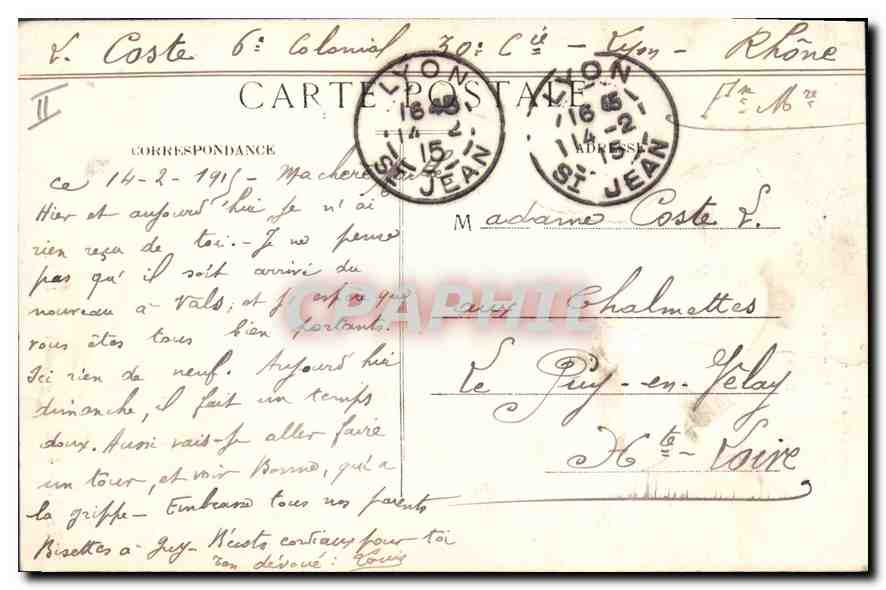 L. Coste 6e Colonial 30e Cie - Lyon - Rhône
II
CARTE POSTALE
Fm Mre
LYON
16 45
14 - 2
15
ST JEAN
LYON
16 45
14 - 2
15
ST JEAN
CORRESPONDANCE
ADRESSE
ce 14-2-1915 - Ma chère
Hier et aujourd'hui je n'ai
rien reçu de toi. - Je ne pense
pas qu'il soit arrivé du
nouveau à Vals, et j'espère que
vous êtes tous bien portants.
Ici rien de neuf. Aujourd'hui
dimanche, il fait un temps
doux. Aussi vais-je aller faire
un tour, et voir Bonne, qui a
la grippe - Embrasse tous nos parents
Bisettes à Guy - B. cordiaux pour toi
ton dévoué : Louis
Madame Coste L.
aux Chalmettes
Le Puy-en-Velay
Hte - Loire
CPAPHIL